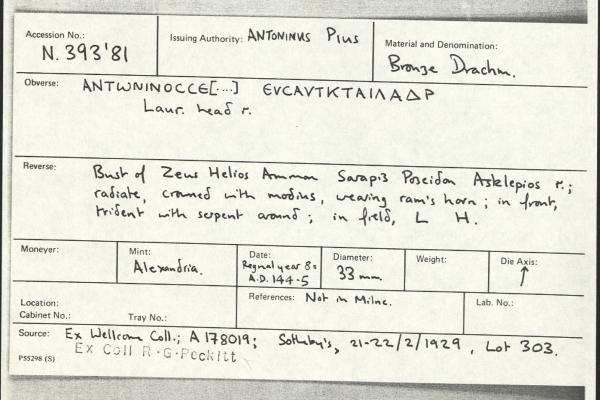 Accession No.: N. 393'81
Issuing Authority: ANTONINUS PIUS
Material and Denomination: Bronze Drachm.
Obverse: ΑΝΤѠΝΙΝΟϹϹΕ[....] ЄVCAVTKTAIΛAΔP
Laur. head r.
Reverse: Bust of Zeus Helios Ammon Sarapis Poseidon Asklepios r.;
radiate, crowned with modius, wearing ram's horn; in front,
trident with serpent around; in field, L H.
Moneyer:
Mint: Alexandria.
Date: Regnal year 8 =
A.D. 144-5
Diameter: 33 mm.
Weight:
Die Axis: ↑
Location:
Cabinet No.: Tray No.:
References: Not in Milne.
Lab. No.:
Source: Ex Wellcome Coll.; A 178019; Sotheby's, 21-22/2/1929, Lot 303.
Ex Coll R.G. Peckitt
PS5298 (S)